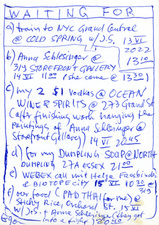 WAITING FOR
a) train to NYC Grand Central
@ COLD SPRING w/J.S. 13 VI 2022
b) Anna Schlesinger @ 13 10
313 STOREFRONT GALLERY
14 VI 11 00 (she came @ 13 00)
c) my 2 $1 Vodkas @ OCEAN
WINE & SPIRITS @ 273 Grand St
(after finishing work hanging the
paintings of Anna Schlesinger @
Storefront Gallery) 14 VI 20 45
d) for my DUMPLING SOUP @ NORTH
DUMPLING 27A ESSEX 21 00
e) WEBEX call mit Helga
@ BIOTOPE CITY 15 VI 10 30
our food (PAD THAI for me) @
Sticky Rice, Orchard St. 15 VI
w/J.S. + Anna Schlesinger (they got